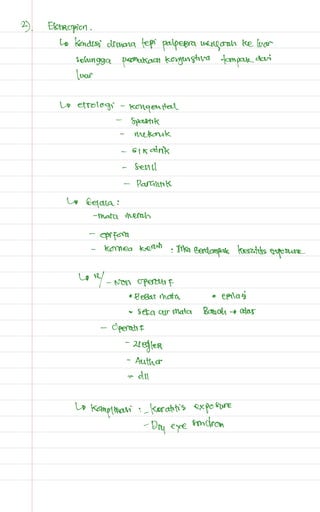 2). Ektropion.
↳ Kondisi dimana tepi palpebra mengarah ke luar
sehingga permukaan konjungtiva tampak dari
luar
↳ etiologi - kongenital
- Spastik
- mekanik
- sikatrik
- Senil
- Paralitik
↳ Gejala :
- mata merah
- epifora
- kornea keruh : Jika Berdampak keratitis exposure
↳ R/ - Non operatif
• Bebat mata • epilasi
• Seka air mata Bawah → atas
- Operatif
- Ziegler
- Author
- dll
↳ komplikasi : - keratitis exposure
- Dry eye sindrom